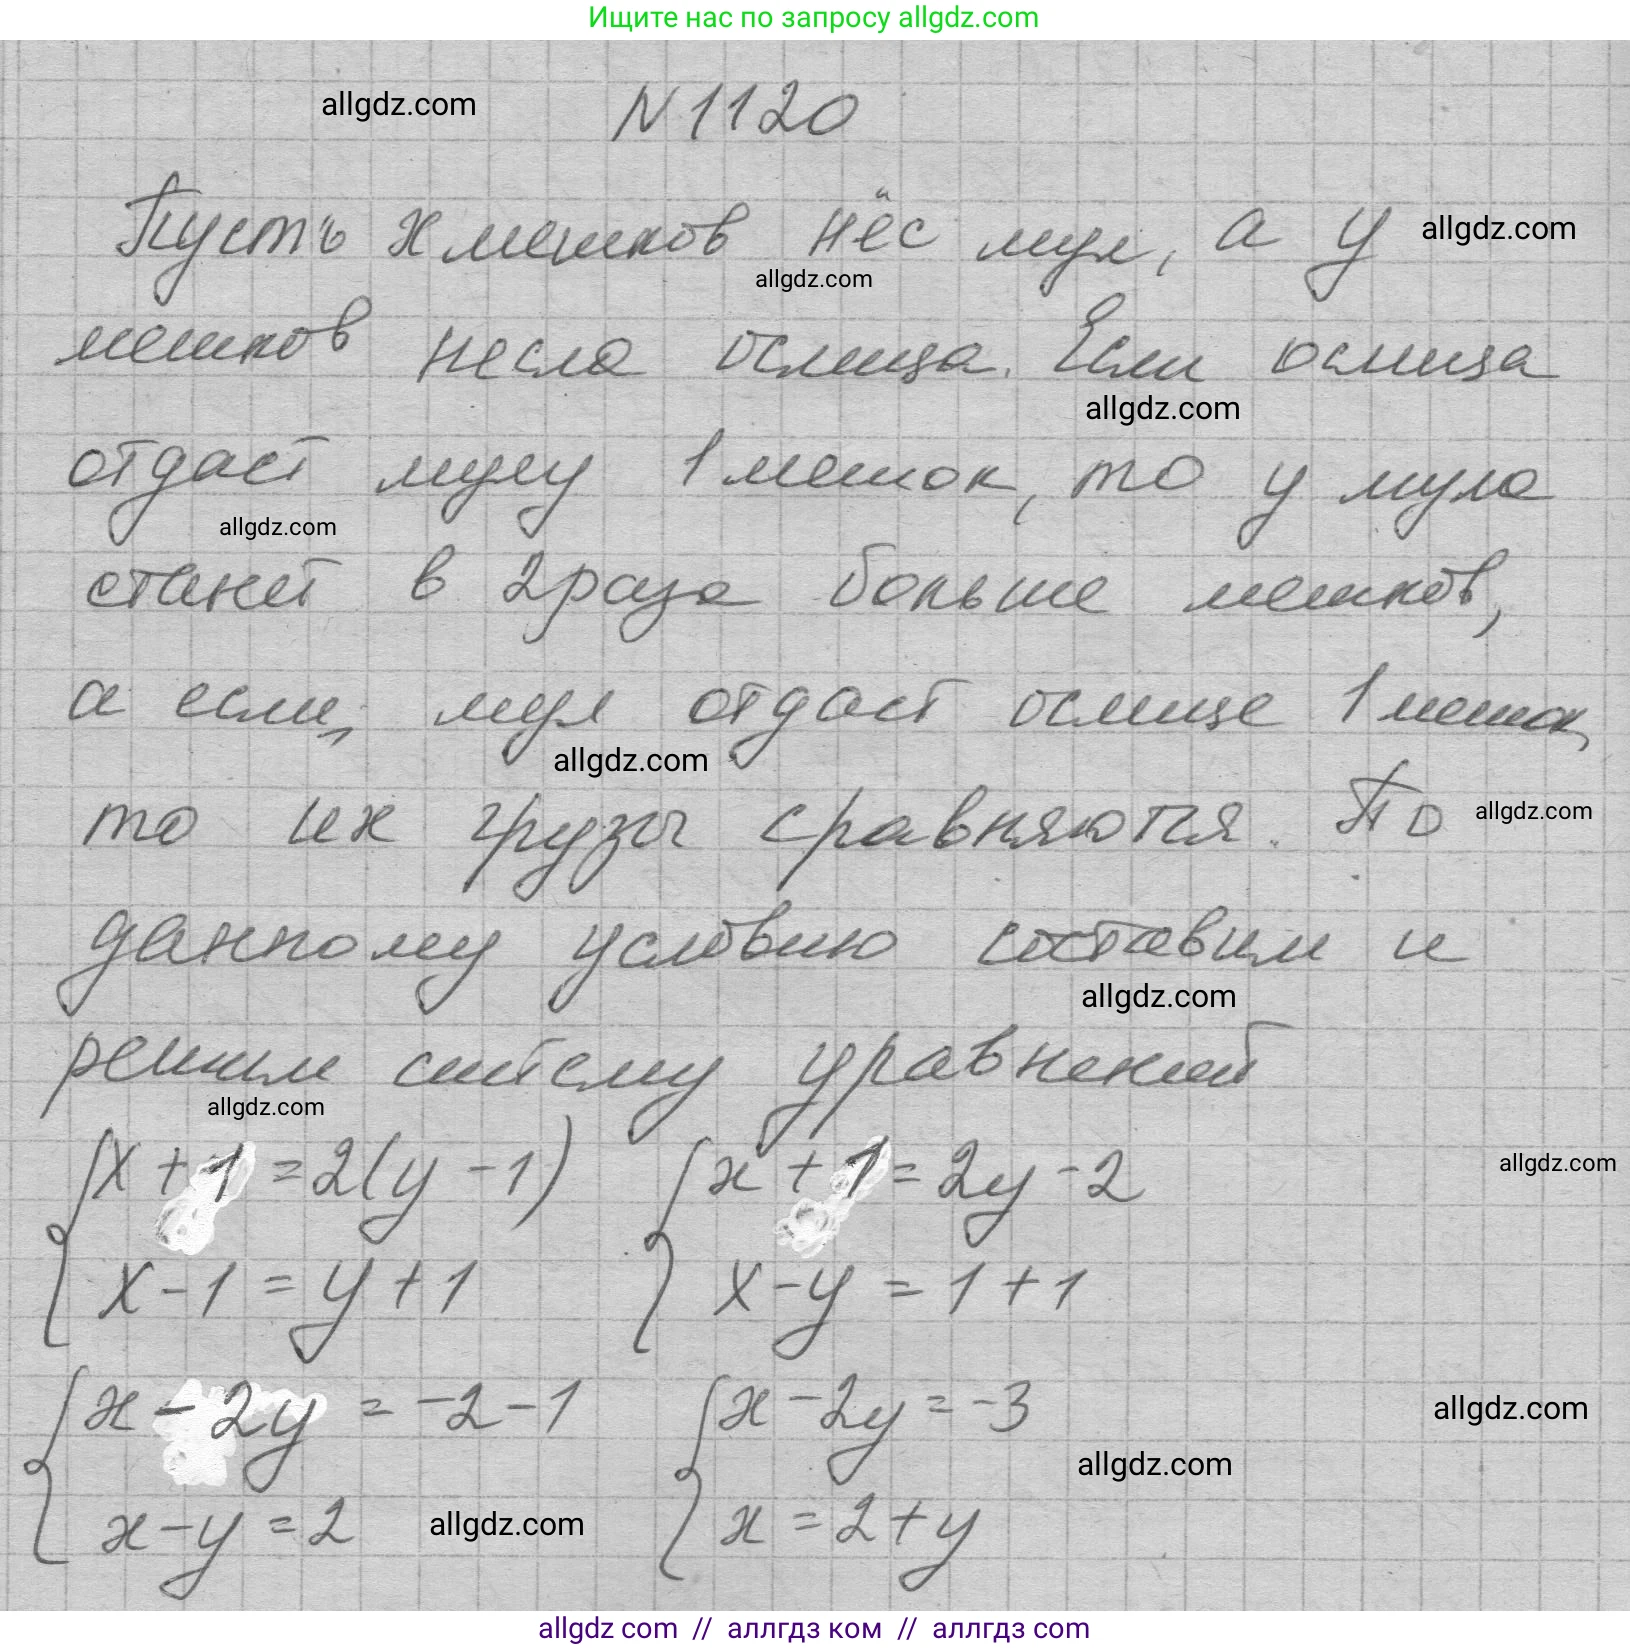 Ищите нас по запросу allgdz.com
allgdz.com
N 1120
Пусть x мешков нёс мул, а y
allgdz.com
allgdz.com
мешков несла ослица. Если ослица
allgdz.com
отдаст мулу 1 мешок, то у мула
allgdz.com
станет в 2 раза больше мешков,
а если, мул отдаст ослице 1 мешок,
allgdz.com
то их грузы сравняются. По
allgdz.com
данному условию составим и
allgdz.com
решим систему уравнений
allgdz.com
{ x + 1 = 2(y - 1) { x + 1 = 2y - 2
allgdz.com
x - 1 = y + 1 x - y = 1 + 1
{ x - 2y = -2 - 1 { x - 2y = -3
allgdz.com
allgdz.com
x - y = 2 x = 2 + y
allgdz.com
allgdz com // аллгдз ком // аллгдз com